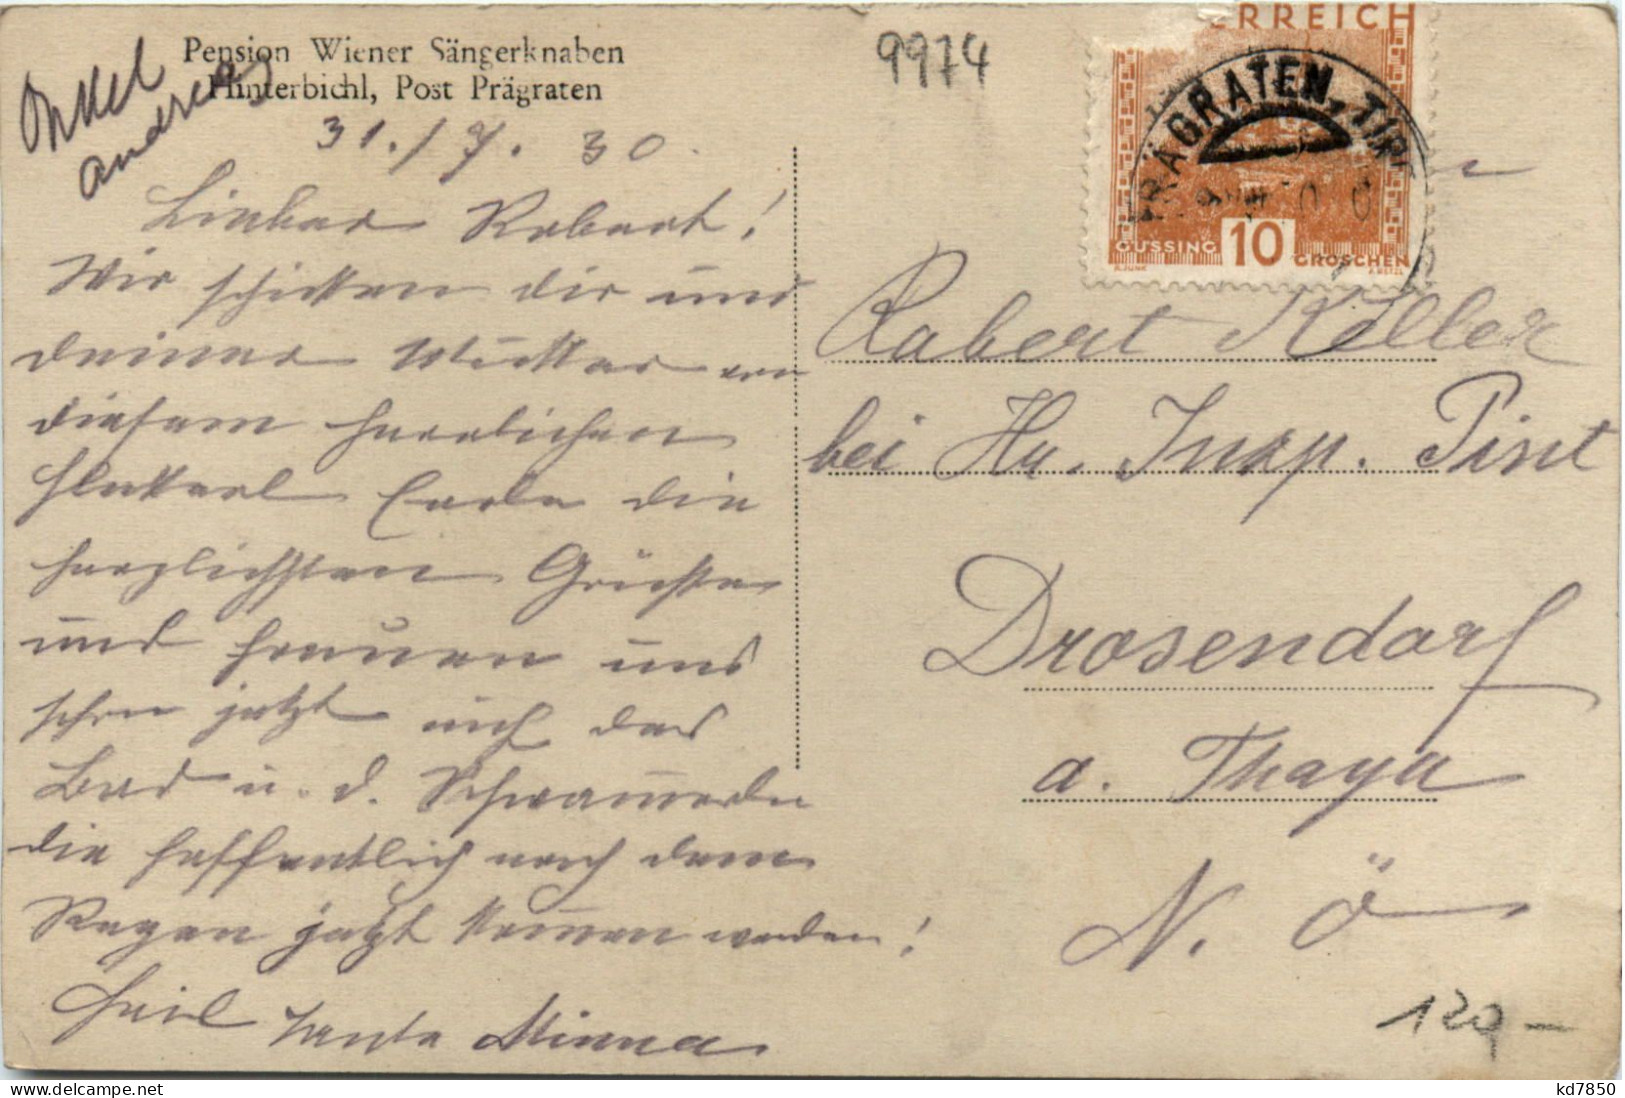 Pension Wiener Sängerknaben
Hinterbichl, Post Prägraten
Onkel
Andreas
31./7. 30.
Lieber Robert!
Wir schicken dir und
deiner Mutter von
diesem herrlichen
Fleckerl Erde die
herzlichsten Grüße
und freuen uns
schon jetzt auf das
Bad u. d. Schwammerln
die hoffentlich nach dem
Regen jetzt kommen werden!
Heil Tante Minna
9974
ERREICH
PRÄGRATEN, TIR
GÜSSING 10 GROSCHEN
Robert Keller
bei Hr. Insp. Pint
Drosendorf
a. Thaya
N. Ö
120,-
www.delcampe.net
kd7850